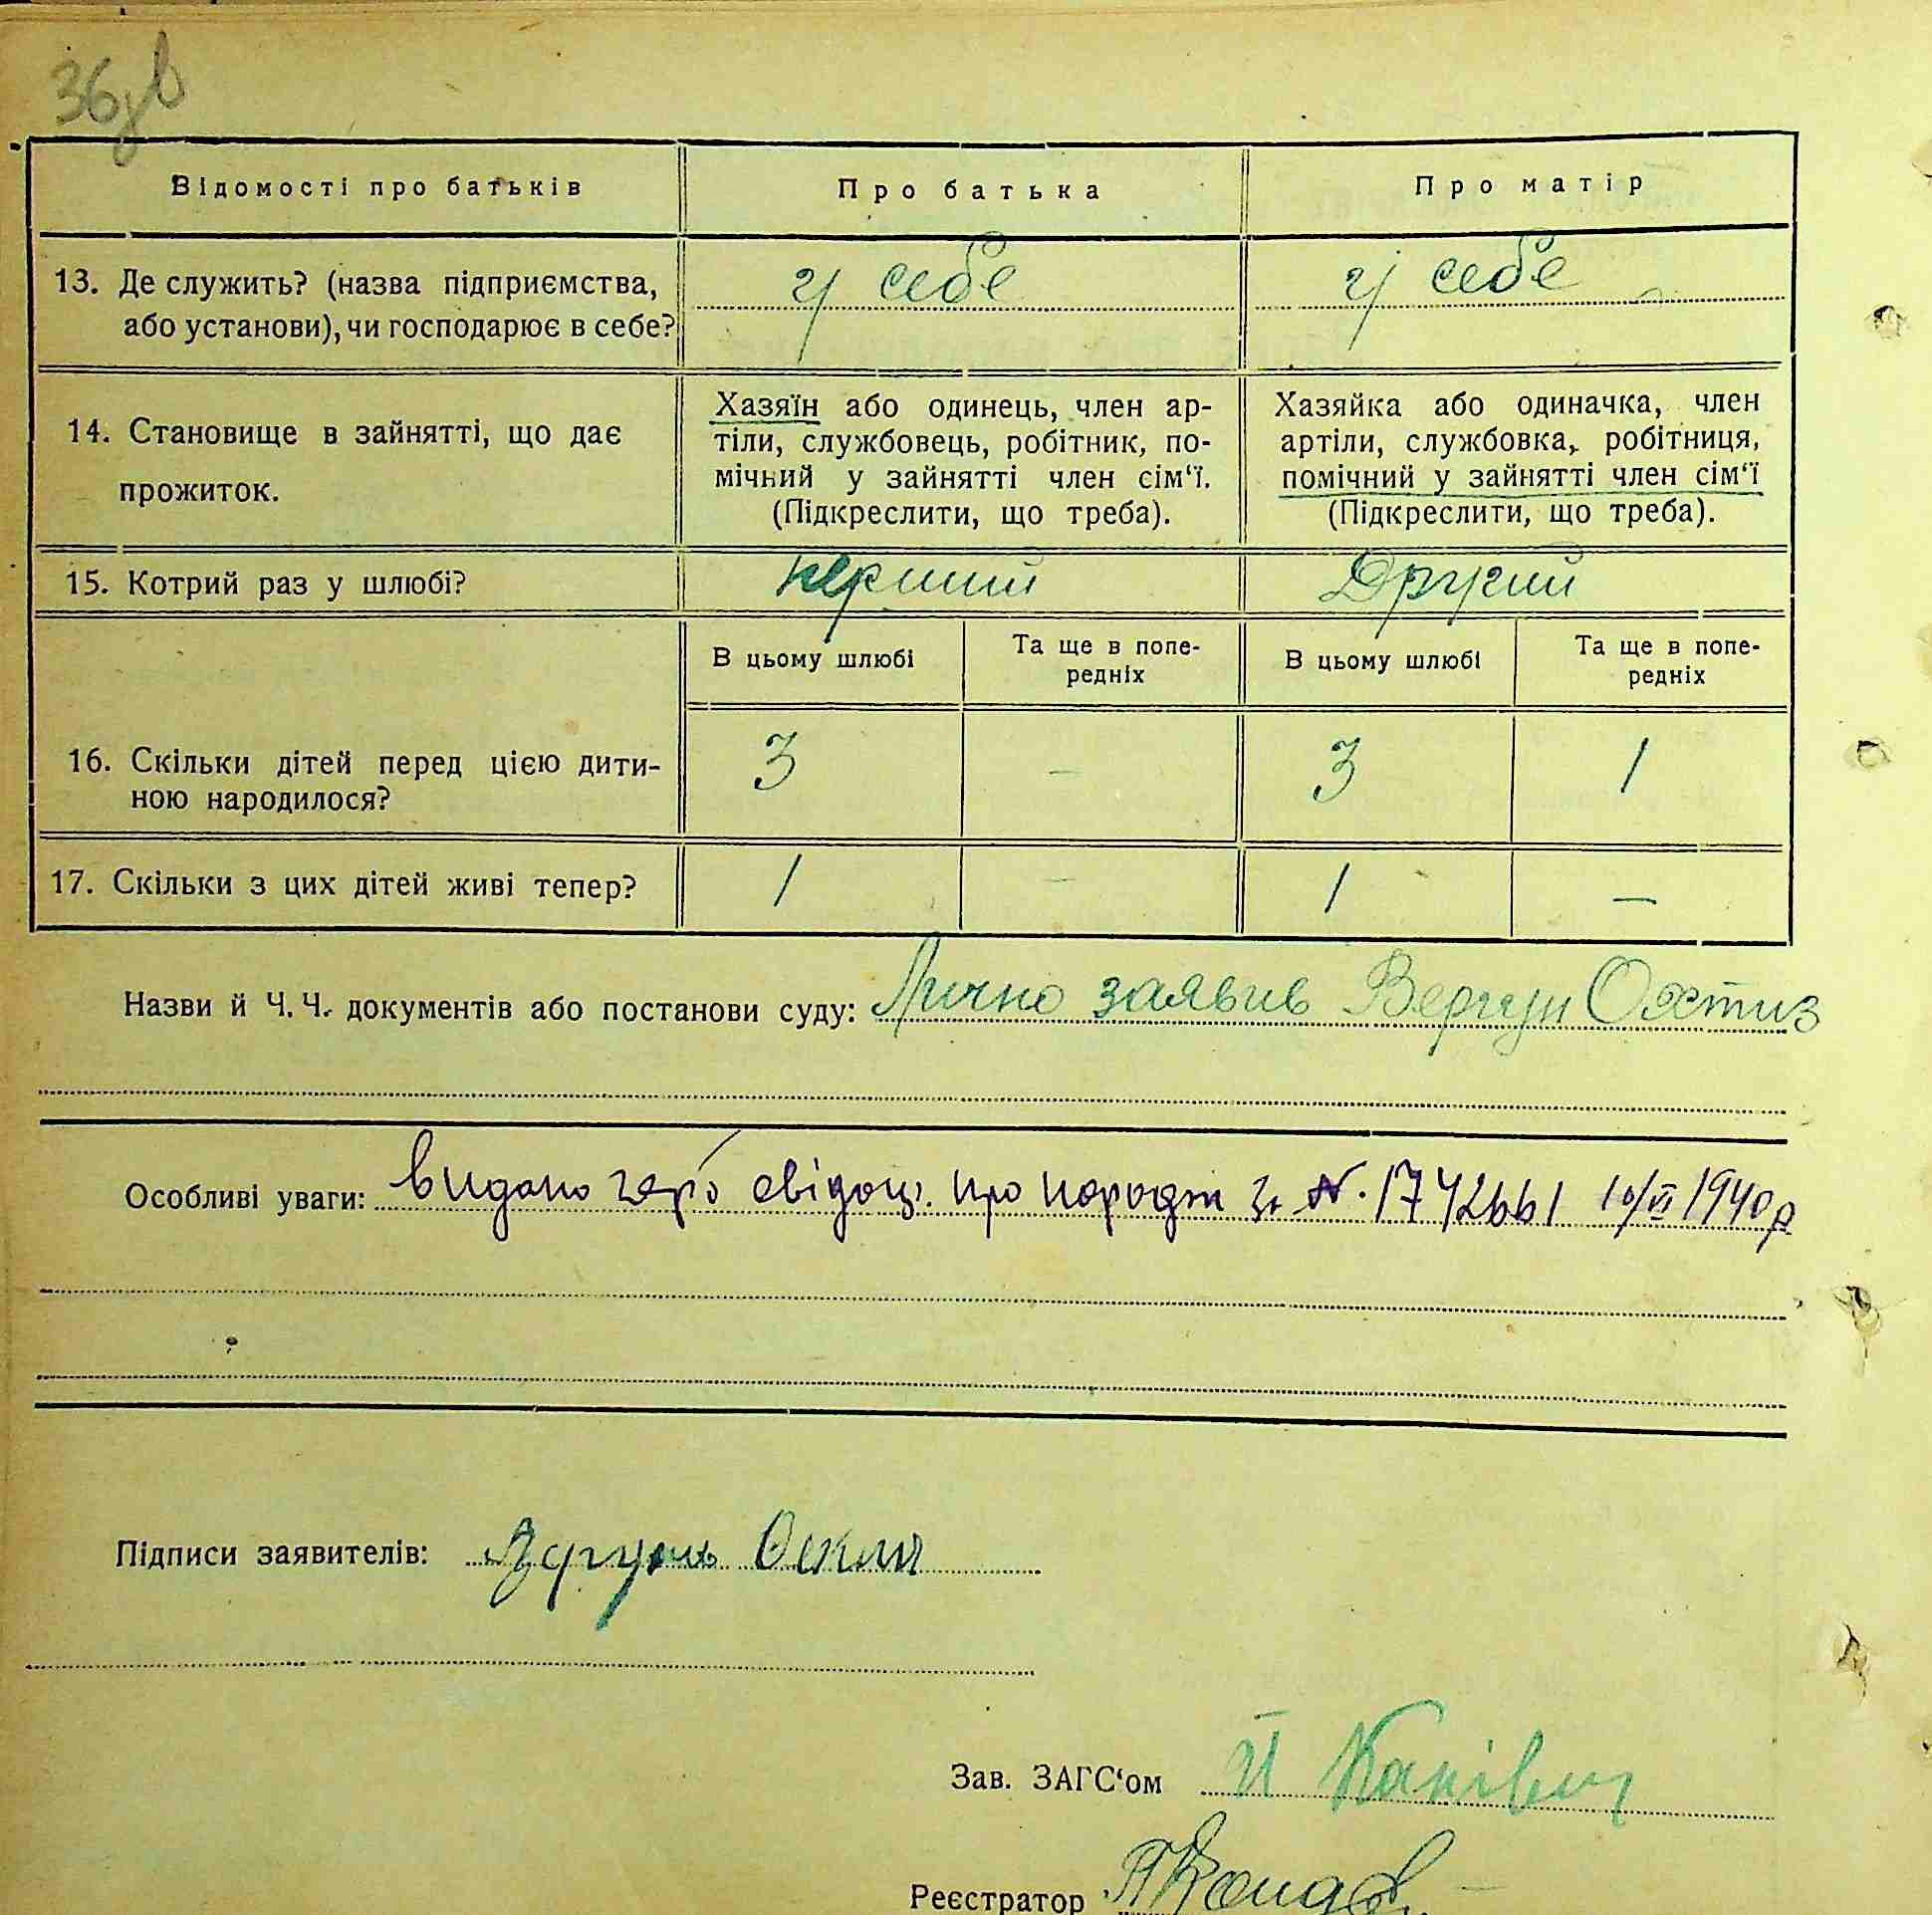 36
Відомості про батьків
Про батька
Про матір
13. Де служить? (назва підприємства,
або установи), чи господарює в себе?
у себе
у себе
14. Становище в зайнятті, що дає
прожиток.
Хазяїн або одинець, член ар-
тіли, службовець, робітник, по-
мічний у зайнятті член сім‘ї.
(Підкреслити, що треба).
Хазяйка або одиначка, член
артіли, службовка, робітниця,
помічний у зайнятті член сім‘ї
(Підкреслити, що треба).
15. Котрий раз у шлюбі?
перший
Другий
В цьому шлюбі
Та ще в попе-
редніх
В цьому шлюбі
Та ще в попе-
редніх
16. Скільки дітей перед цією дити-
ною народилося?
3
-
3
1
17. Скільки з цих дітей живі тепер?
1
-
1
-
Назви й Ч. Ч. документів або постанови суду: Лично заявив Вергун
Особливі уваги: видано свідоц. про народж за №. 1742661 10/VI 1940 р
Підписи заявителів:
Зав. ЗАГС‘ом
Реєстратор